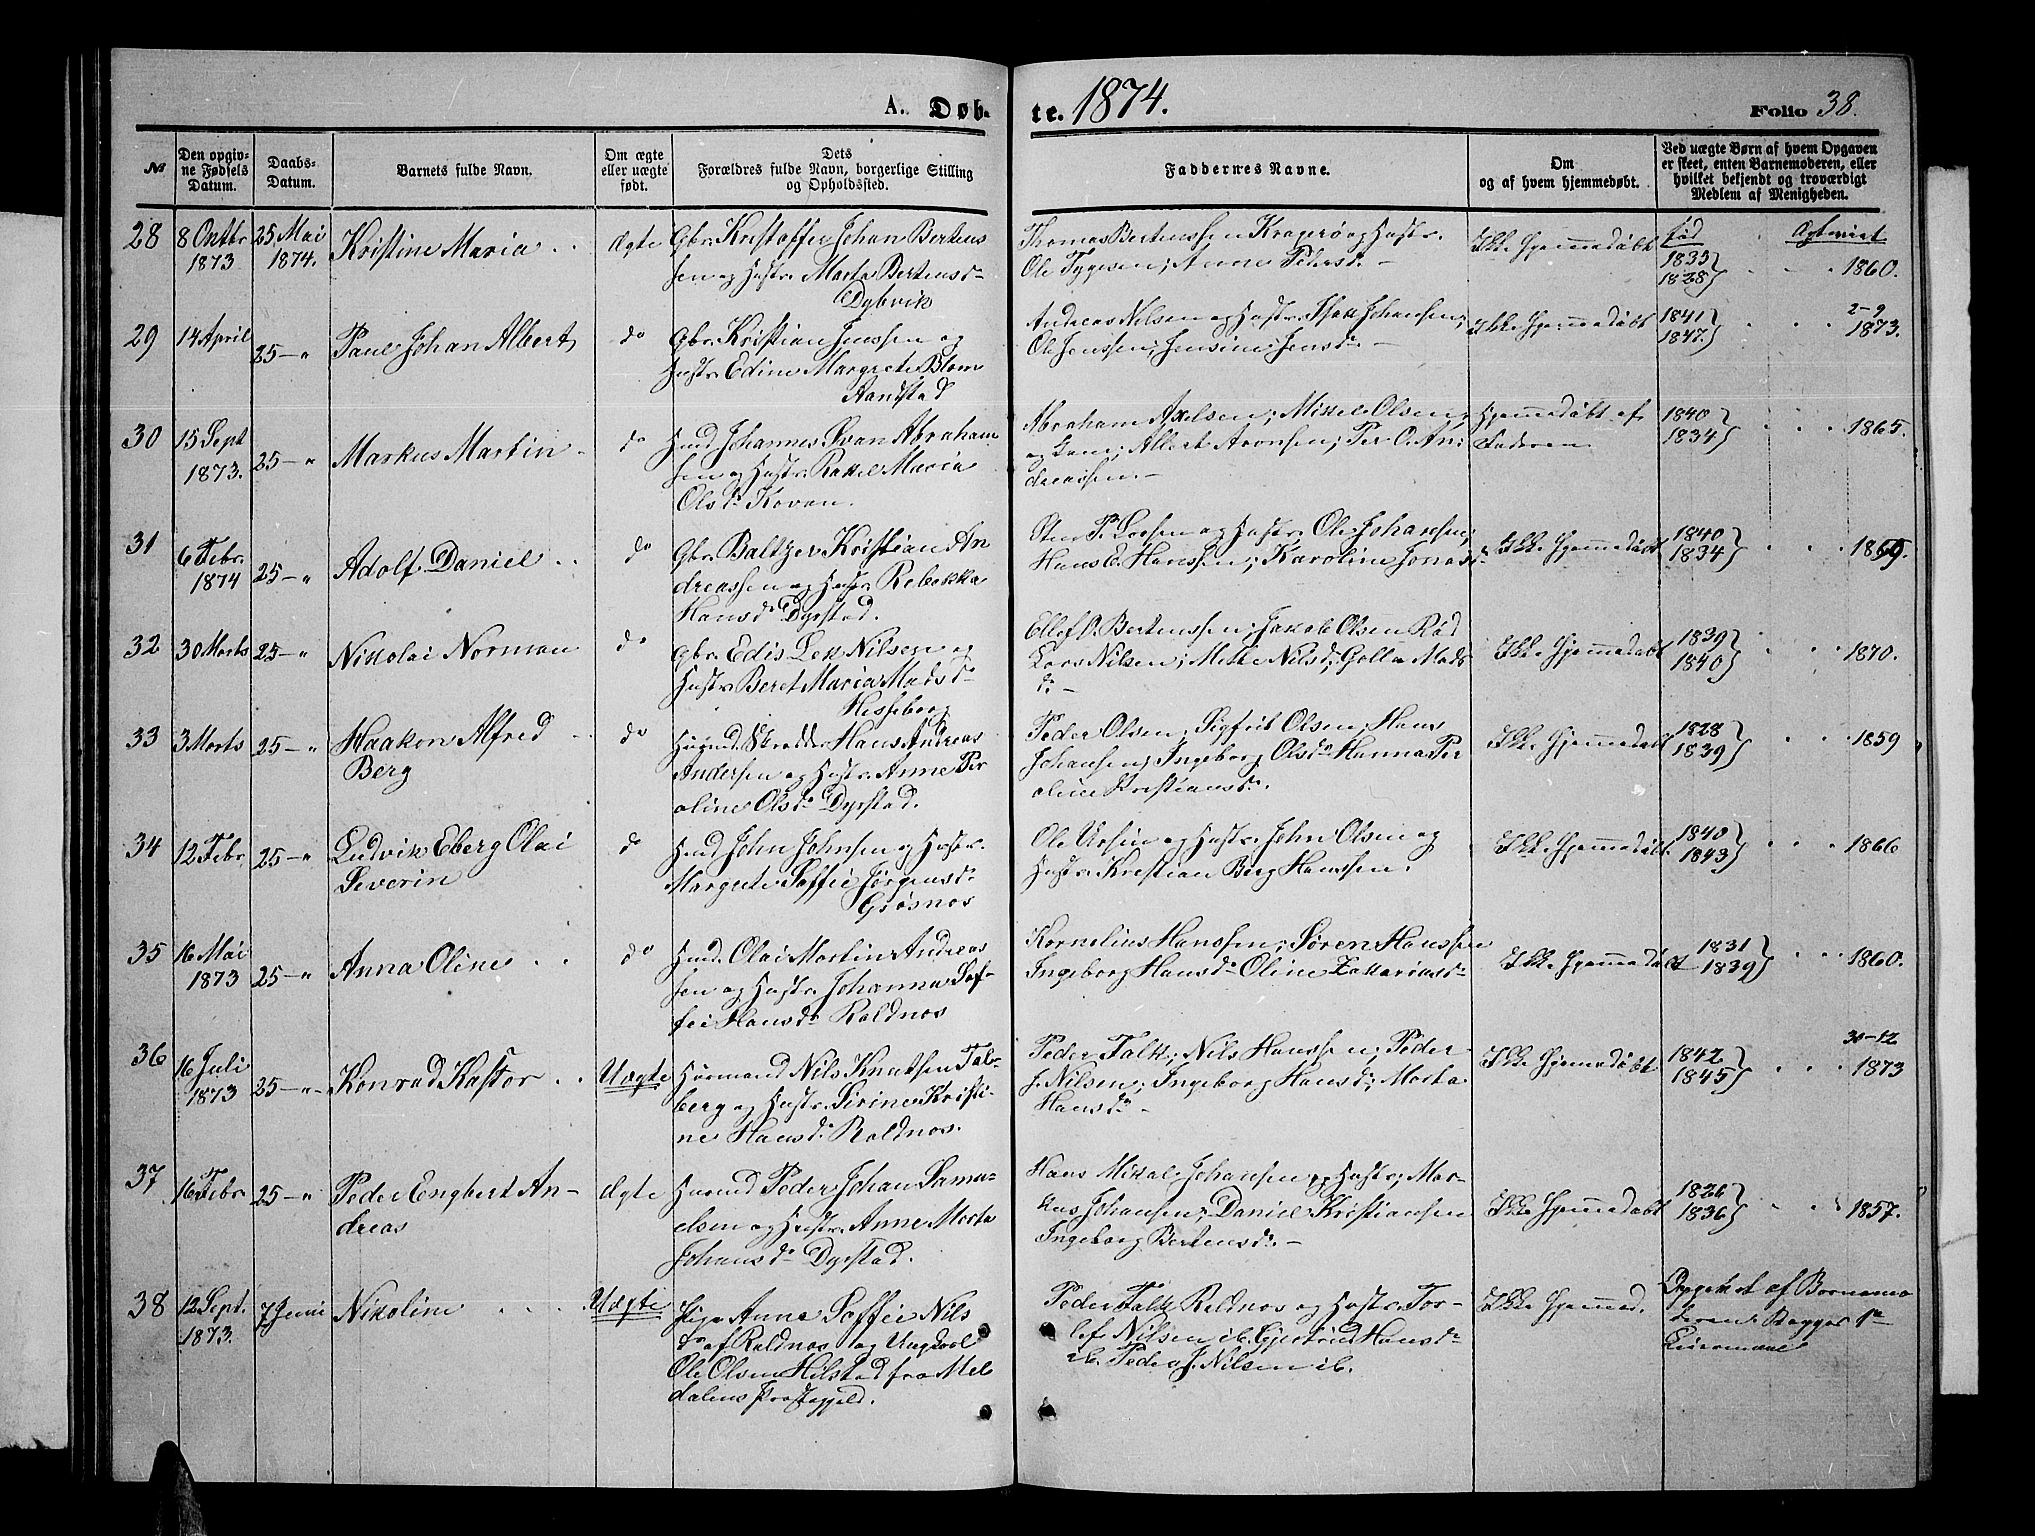 A. Døb-
te. 1874.
Folio 38.
№
Den opgiv-
ne Fødsels
Datum.
Daabs-
Datum.
Barnets fulde Navn.
Om ægte
eller uægte
født.
Dets
Forældres fulde Navn, borgerlige Stilling
og Opholdssted.
Faddernes Navne.
Om
og af hvem hjemmedøbt.
Ved uægte Børn af hvem Opgaven
er skeet, enten Barnemoderen, eller
hvilket bekjendt og troværdigt
Medlem af Menigheden.
28
8 Octbr
1873
25 Mai
1874.
Kristine Maria
Ægte
Gbr. Kristoffer Johan Bertens
sen og Hustr. Marta Bertensd.
Dybvik
Thomas Bertenssen Kragerø og Hustr.
Ole Tygesen; Anne Pedersd. -
Ikke Hjemmedøbt
Fød
1835
1828
Ægteviet
1860.
29
14 April
25 - "
Paul Johan Albert
do
Gbr. Kristian Jenssen og
Hustr. Edine Margrete Blom
Aandstad
Andreas Nilsen og Hustr. Isak Johansen;
Ole Jenssen; Jensine Jensd. -
Ikke Hjemmedøbt
1841
1847.
2-9
1873.
30
15 Sept
1873.
25 - "
Markus Martin
do
Hmd. Johannes Svan Abraham
sen og Hustr. Rakel Maria
Olsd.
Abraham Axelsen; Mikkel Olsen
Albert Aronsen; Per O. An-
dreassen. -
Hjemmedøbt af
Faderen
1840
1834
1865.
31
6 Febr.
1874
25 - "
Adolf Daniel
do
Gbr. Baltzer Kristian An
dreassen og Hustr. Rebekka
Hansd. Dyrstad.
og Hustr. Ole Johansen;
Hans E. Hanssen; Karoline Jonasd.
Ikke Hjemmedøbt
1840
1834
32
30 Marts
25 - "
Nikolai Norman
do
Gbr. Edis Lek Nilsen og
Hustr. Beret Maria Madsd.
Hesseberg
Ellef O. Bertenssen; Jakob Olsen Rød
Lars Nilsen; Mette Nilsd; Golla Mads
d. -
Ikke Hjemmedøbt
1839
1840
1870.
33
3 Marts
25 - "
Haakon Alfred
Berg
do
Skrædder Hans Andreas
Andersen og Hustr. Anne Per
oline Olsd. Dyrstad.
Peder Olsen; Sigfrit Olsen; Hans
Johansen; Ingeborg Olsd. Hanna Per
oline Kristiansd.
Ikke Hjemmedøbt
1828
1839
1859
34
12 Febr
25 - "
Ludvik Eberg Olai
Severin
do
Hmd. John Johnsen og Hustr.
Margrete Soffie Jørgensd.
Grøsnes
Ole Ursin og Hustr. John Olsen og
Hustr. Kristian Berg Hanssen.
Ikke Hjemmedøbt
1840
1843
1866
35
16 Mai
1873
25 - "
Anna Oline
do
Hmd. Olai Martin Andreas
sen og Hustr. Johanna Sof-
fie Hansd. Roldnes
Kornelius Hanssen; Søren Hanssen
Ingeborg Hansd. Oline Zakariasd.
Ikke Hjemmedøbt
1831
1839
1860.
36
16 Juli
1873
25 - " -
Konrad Kastor
Uægte
Huusmand Nils Knutsen Fal-
berg og Hustr. Sirine Kristi-
ne Hansd. Roldnes.
Peder Falk; Nils Hanssen; Peder
J. Nilsen; Ingeborg Hansd; Marta
Hansd. -
Ikke Hjemmedøbt
1842
1845
30-12
1873
37
16 Febr
25 - "
Peder Engbert An-
dreas
Ægte
Husmd Peder Johan Samu-
elsen og Hustr. Anne Marta
Johansd. Dyrstad.
Hans Mikal Johansen og Hustr; Mar-
kus Johansen; Daniel Kristiansen
Ingeborg Bertensd. -
Ikke Hjemmedøbt
1826
1836
1857.
38
12 Sept.
1873.
7 Juni
Nikoline
Uægte
Pige Anne Soffie Nils
d. af Roldnes og Ungkarl
Ole Olsen Hilstad fra Mel
dalens Præstegjeld.
Peder Falk Roldnes og Hustr. Tor-
lef Nilsen ib. Gjertrud Hansd.
ib. Peder J. Nilsen ib.
Ikke Hjemmed.
Opgivet af Barnemo
deren. Begges 1ste
Leiermaal